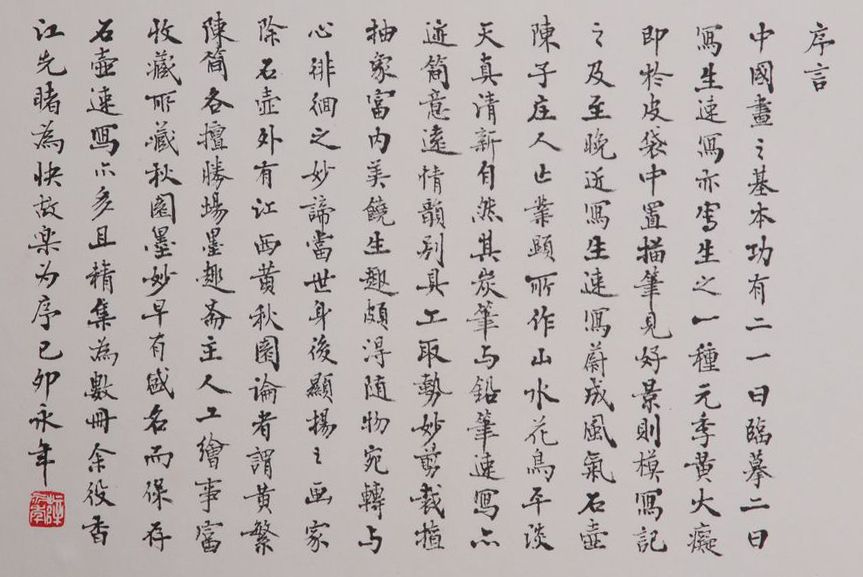 序言
中國畫之基本功有二一曰臨摹二曰
寫生速寫亦寫生之一種元季黃大癡
即於皮袋中置描筆見好景則模寫記
之及至晚近寫生速寫蔚成風氣石壺
陳子庄人品業顯所作山水花鳥平淡
天真清新自然其炭筆与鉛筆速寫亦
迹簡意遠情韻別具工取勢妙剪裁擅
抽象富内美饒生趣頗得随物宛轉与
心徘徊之妙諦當世身後顯揚之画家
除石壺外有江西黃秋園論者謂黃繁
陳簡各擅勝場墨趣齋主人工繪事富
收藏所藏秋園墨妙早有盛名而保存
石壺速寫亦多且精集為數冊余役香
江先睹為快故樂为序己卯永年